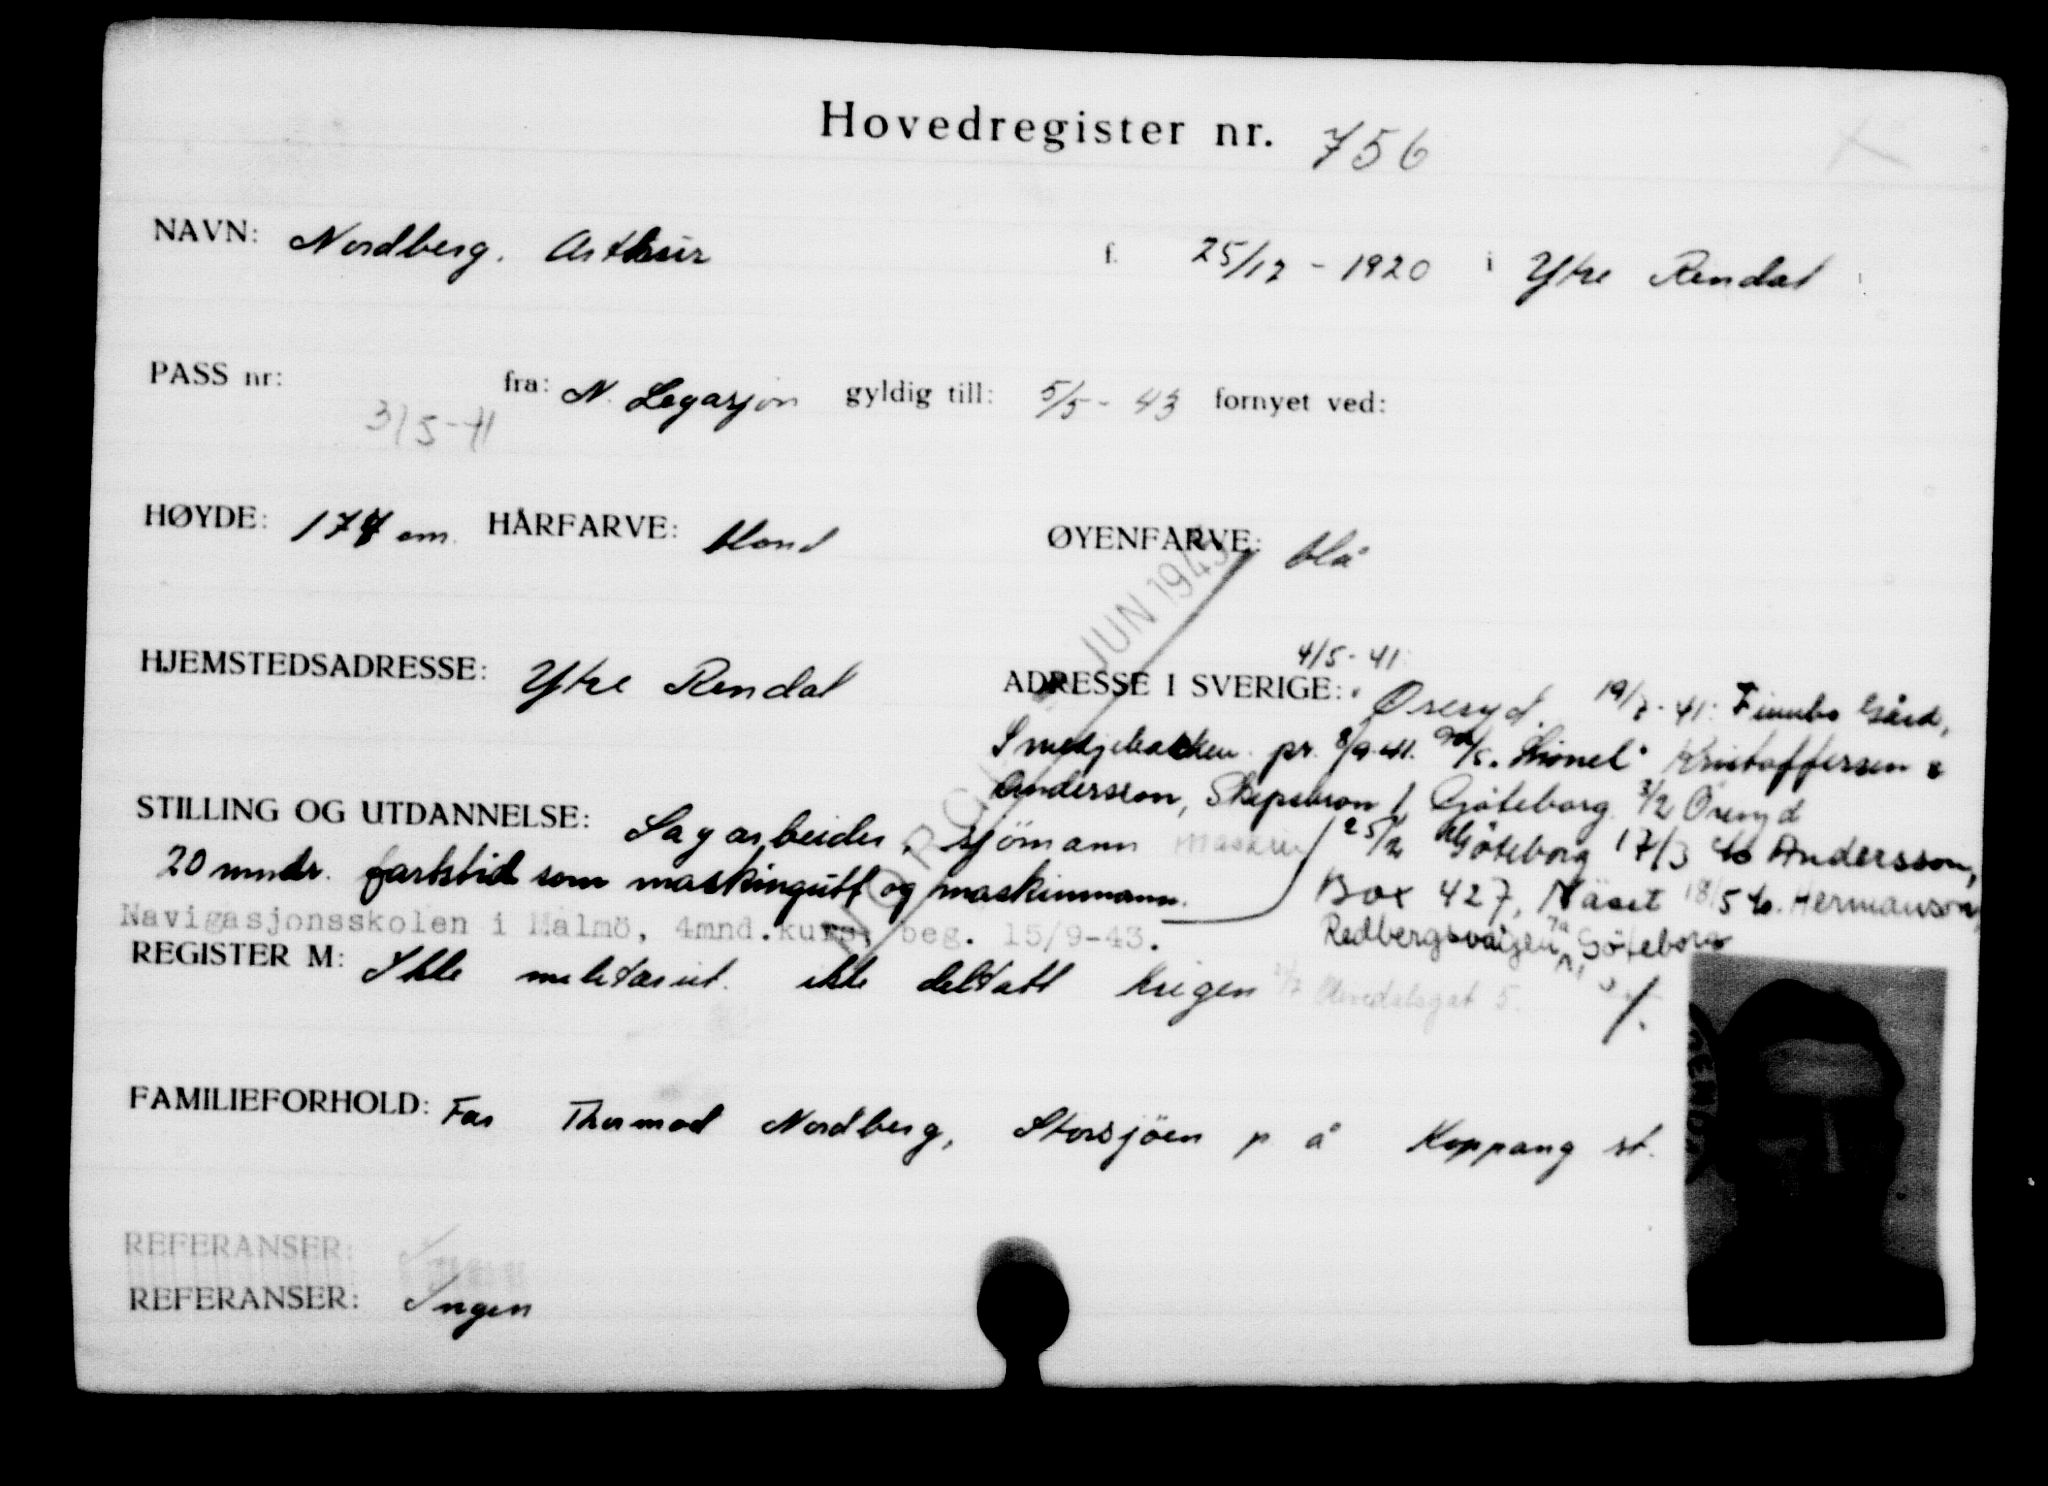 Hovedregister nr. 756
NAVN: Nordberg. Arthur f. 25/12 - 1920 i Ytre Rendal
PASS nr: fra: N. Legasjon gyldig till: 5/5 - 43 fornyet ved:
3/5-41
HØYDE: cm. HÅRFARVE: blond ØYENFARVE: blå
JUN 1945
4/5 - 41
HJEMSTEDSADRESSE: Ytre Rendal ADRESSE I SVERIGE: Öreryd. 19/7-41: Finnbo Gård,
Smedjebacken. pr. 8/9-41. Kristoffersen &
Andersson, Skipsbron 1 Göteborg. 3/2 Öreryd
STILLING OG UTDANNELSE: Sagarbeider, sjömann maskin 25/2 Göteborg 17/3 c/o Andersson,
20 mndr. fartstid som maskingutt og maskinmann. Box 427, Näset 18/5 c/o Hermanson,
Navigasjonsskolen i Malmö, 4mnd.kurs, beg. 15/9-43. Redbergsvägen 7a, Göteborg
NORGE
REGISTER M: Ikke militærut. ikke deltatt krigen
FAMILIEFORHOLD: Far Thormod Nordberg, Storsjöen p å Koppang st.
REFERANSER: Ingen
REFERANSER: Ingen